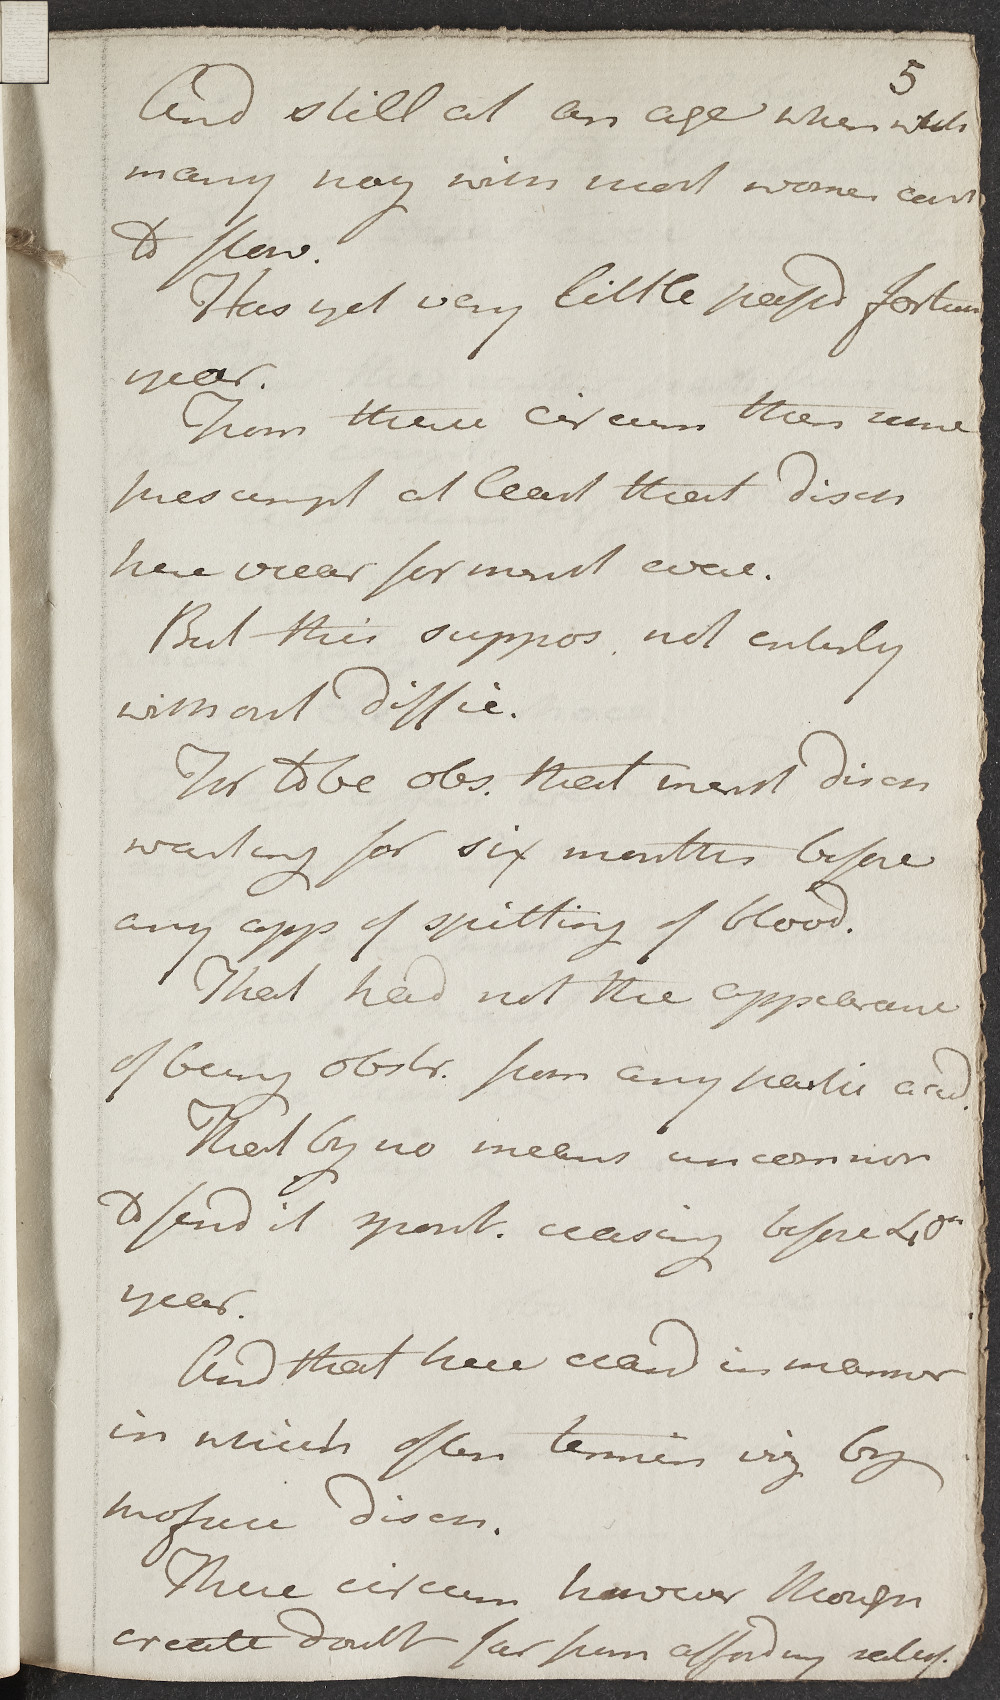 5
And still at an age when with
many nay with most women cont
to flow.
Has yet very little pass'd fortieth
year.
From these circum then some
presumpt at least that disch
here vicar for menst evac.
But this suppos. not entirely
without diffic.
For to be obs. that menst disch
wanting for six months before
any app of spitting of blood.
That had not the appearance
of being obstr. from any partic accid.
That by no means uncommon
to find it spont. ceasing before 40th
year.
And that here ceasd in manner
in which often termin viz by
profuse disch.
These circum however though
create doubt far from affording